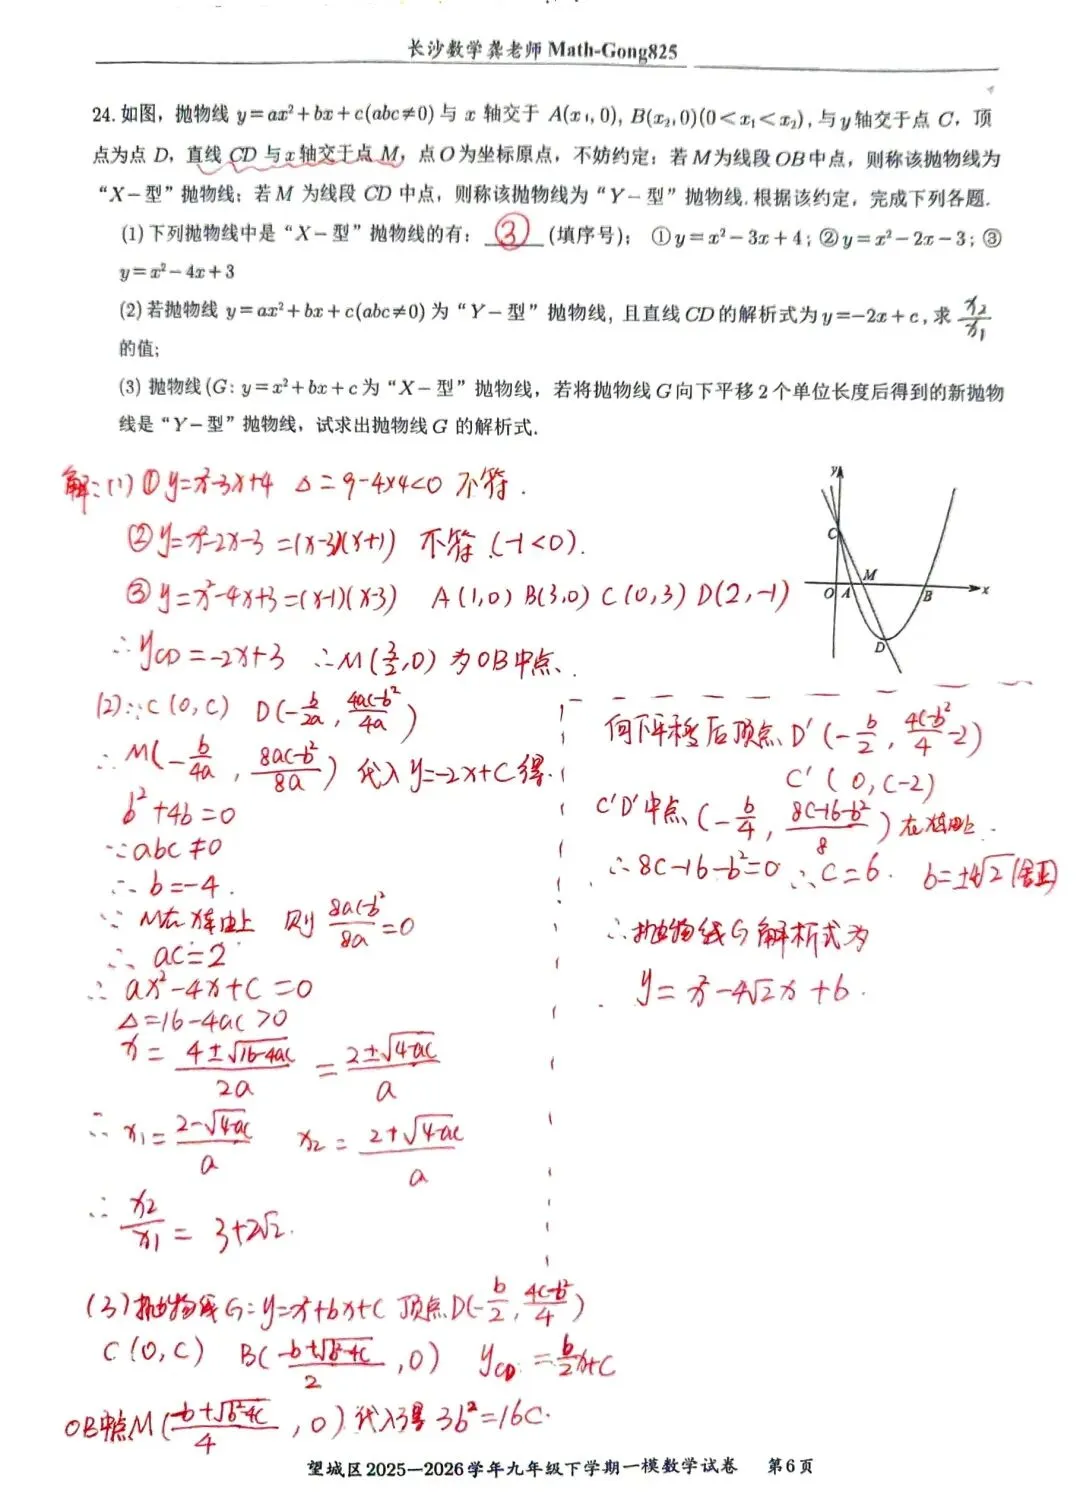 长沙数学龚老师Math-Gong825
24.如图，抛物线 y=ax²+bx+c(abc≠0)与 x 轴交于 A(x₁,0), B(x₂,0)(0<x₁<x₂)，与y轴交于点 C，顶
点为点 D，直线 CD 与x轴交于点 M，点O为坐标原点，不妨约定：若M为线段OB中点，则称该抛物线为
“X－型”抛物线；若 M 为线段 CD 中点，则称该抛物线为“Y－型”抛物线.根据该约定，完成下列各题.
(1)下列抛物线中是“X－型”抛物线的有： ③ (填序号)； ①y=x²−3x+4；②y=x²−2x−3；③
y=x²−4x+3
(2)若抛物线 y=ax²+bx+c(abc≠0)为“Y－型”抛物线，且直线CD的解析式为y=−2x+c，求 x₂/x₁
的值；
(3) 抛物线(G：y=x²+bx+c为“X－型”抛物线，若将抛物线G向下平移2个单位长度后得到的新抛物
线是“Y－型”抛物线，试求出抛物线G 的解析式.
解:(1) ① y=x²-3x+4 Δ=9-4×4<0 不符.
② y=x²-2x-3=(x-3)(x+1) 不符 (-1<0).
③ y=x²-4x+3=(x-1)(x-3) A(1,0) B(3,0) C(0,3) D(2,-1)
∴ yCD=-2x+3 ∴M(3/2,0) 为OB中点.
y
C
M
O A B x
D
(2)∵C(0,C) D(-b/2a, 4ac-b²/4a)
∴ M(-b/4a, 8ac-b²/8a) 代入y=-2x+C得.
b²+4b=0
∵abc≠0
∴b=-4.
∵ M在x轴上 则 8ac-b²/8a=0
∴ ac=2
∴ ax²-4x+C=0
Δ=16-4ac>0
x= 4±√16-4ac/2a = 2±√4-ac/a
∴ x₁= 2-√4-ac/a x₂= 2+√4-ac/a
∴ x₂/x₁ = 3+2√2.
(3)抛物线G:y=x²+bx+C 顶点D(-b/2, 4c-b²/4)
C(0,C) B(-b+√b²-4c/2, 0) yCD=b/2x+C
OB中点M(-b+√b²-4c/4, 0) 代入得 3b²=16C.
向下平移后顶点D′(-b/2, 4c-b²/4-2)
C′(0,C-2)
C′D′中点(-b/4, 8C-16-b²/8)在x轴上.
∴8C-16-b²=0 ∴C=6. b=±4√2(舍正)
∴抛物线G解析式为
y=x²-4√2x+6.
望城区2025—2026学年九年级下学期一模数学试卷 第6页